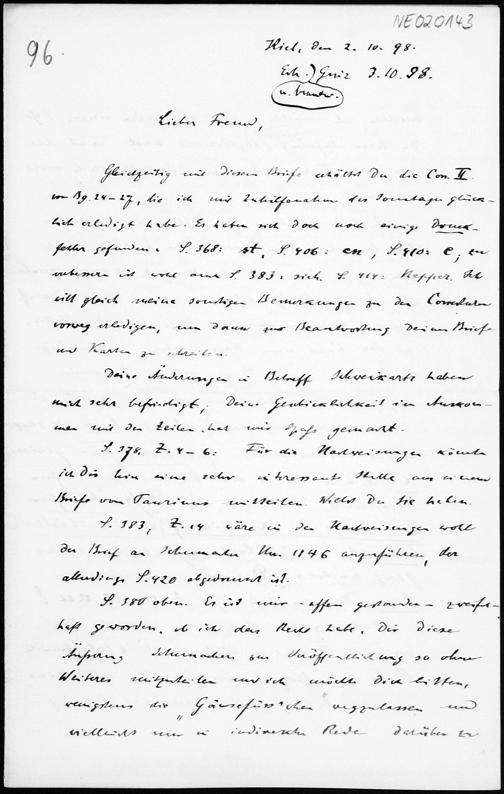 NE020143
96.
Kiel, den 2.10.98.
Erh.) Greiz 3.10.98.
u. beantw.
Lieber Freund,
Gleichzeitig mit diesem Briefe erhältst Du die Corr. II
von Bg. 24-27, die ich mit Zuhilfenahme des Sonntags glück-
lich erledigt habe. Es haben sich doch noch einige Druck-
fehler gefunden. S. 368: st, S. 406: en, S. 410: e; zu
verbessern ist wohl auch S. 383: sich. S. 414: Ich
will gleich meine sonstigen Bemerkungen zu den Correcturen
vorweg erledigen, um dann zur Beantwortung Deiner Briefe
und Karten zu schreiten.
Deine Änderungen in Betreff Schweikarts haben
mich sehr befriedigt; Deine Geschicklichkeit im Auskom-
men mit den Zeilen hat mir Spaß gemacht.
S. 378. Z. 4-6: Für die Nachweisungen könnte
ich Dir hier eine sehr interessante Stelle aus einem
Briefe von Taurinus mitteilen. Willst Du sie haben.
S. 383, Z. 14 wäre in den Nachweisungen wohl
der Brief an Schumacher Nr. 1146 anzuführen, der
allerdings S. 420 abgedruckt ist.
S. 380 oben. Es ist mir - offen gestanden - zweifel-
haft geworden, ob ich das Recht habe, Dir diese
Äußerung Schumachers zur Veröffentlichung so ohne
Weiteres mitzuteilen und ich möchte Dich bitten,
wenigstens die "Gänsefüsschen" wegzulassen und
vielleicht nur in indirecter Rede darüber zu